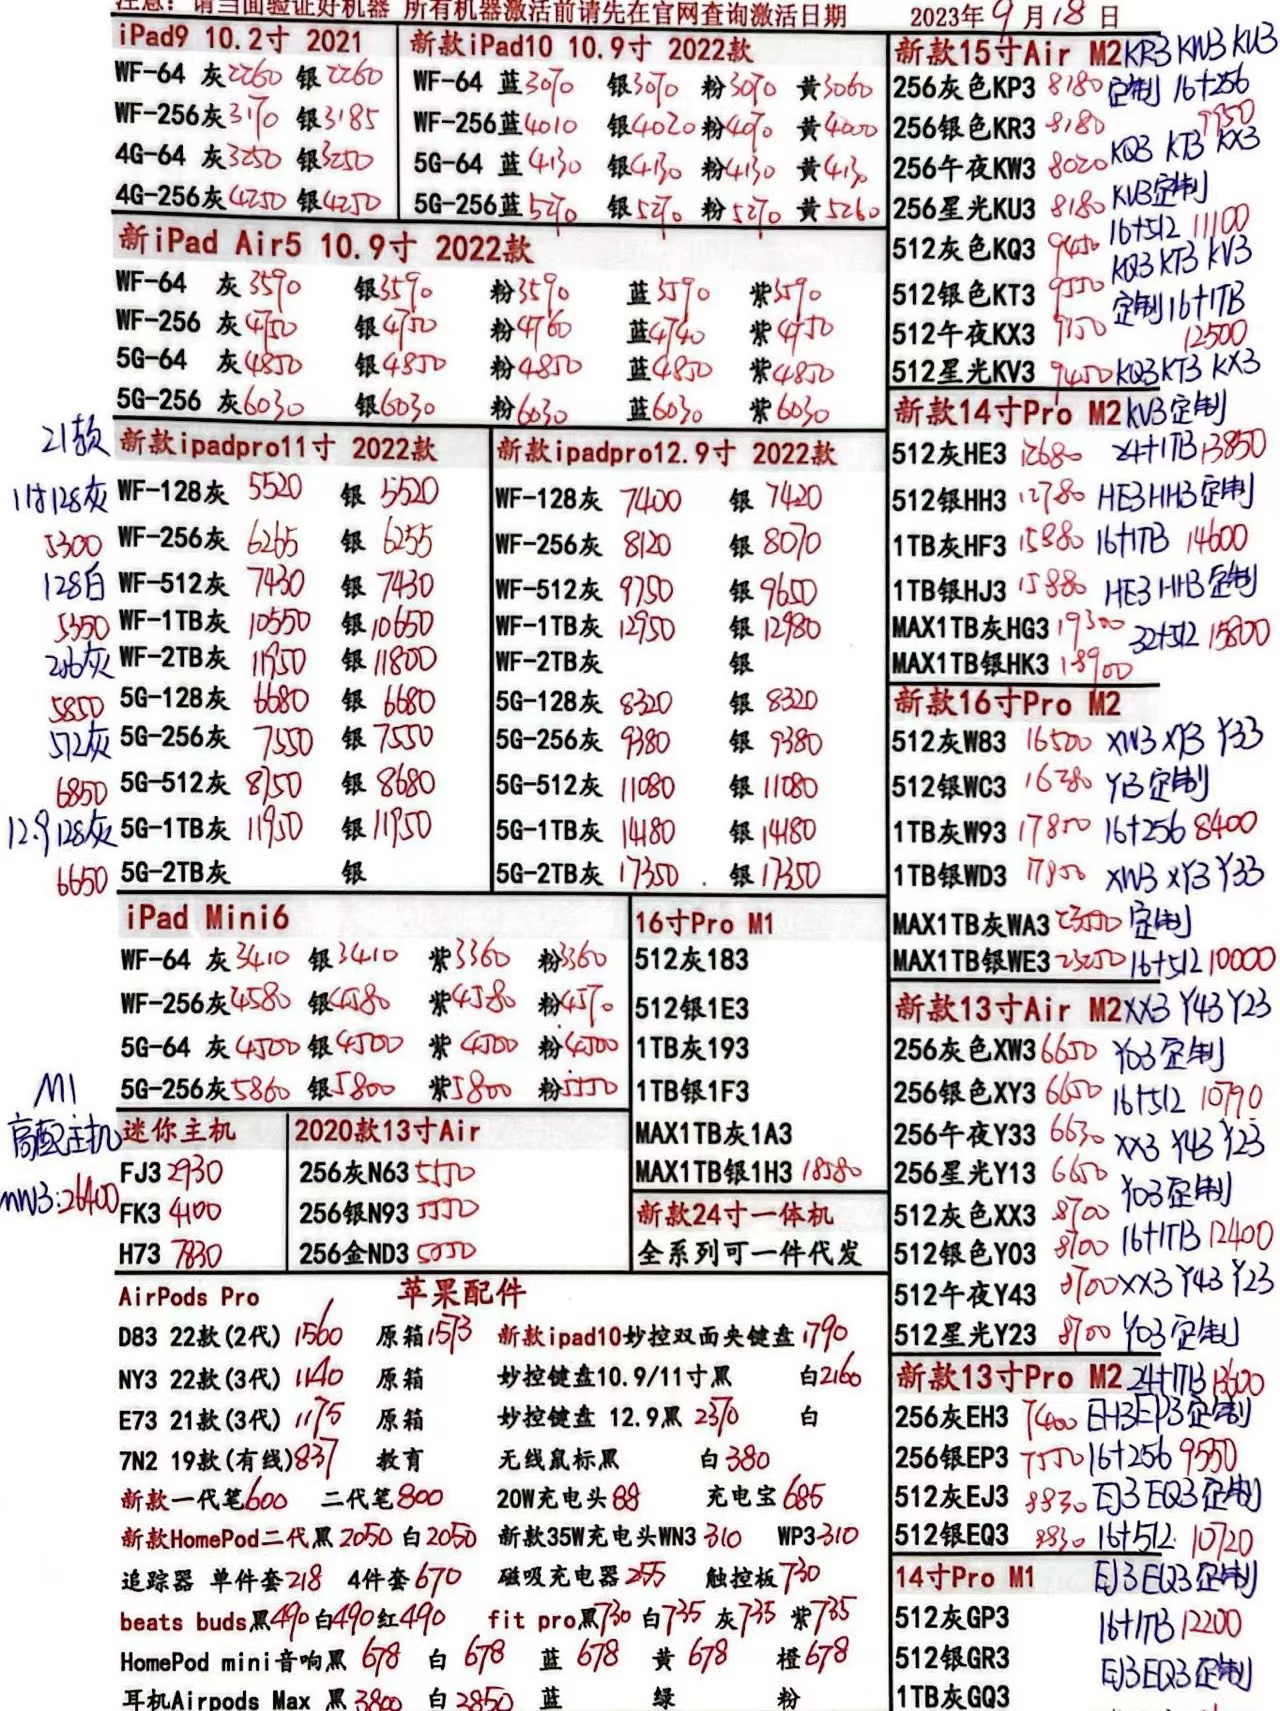 注意：请当面验证好机器 所有机器激活前请先在官网查询激活日期 2023年9月18日
iPad9 10.2寸 2021
WF-64 灰2260 银2260
WF-256灰3170 银3185
4G-64 灰3250 银3250
4G-256灰4250 银4250
新款iPad10 10.9寸 2022款
WF-64 蓝3070 银3070 粉3070 黄3060
WF-256蓝4010 银4020 粉4070 黄4000
5G-64 蓝4130 银4130 粉4130 黄4130
5G-256蓝5270 银5270 粉5270 黄5260
新iPad Air5 10.9寸 2022款
WF-64 灰3590 银3590 粉3590 蓝3590 紫3590
WF-256 灰4750 银4750 粉4760 蓝4740 紫4750
5G-64 灰4850 银4850 粉4850 蓝4850 紫4850
5G-256 灰6030 银6030 粉6030 蓝6030 紫6030
21款
11寸128灰
5300
128白
5350
256灰
5850
512灰
6850
12.9 128灰
6650
新款ipadpro11寸 2022款
WF-128灰 5520 银 5520
WF-256灰 6265 银 6255
WF-512灰 7430 银 7430
WF-1TB灰 10550 银10650
WF-2TB灰 11950 银11800
5G-128灰 6680 银 6680
5G-256灰 7550 银 7550
5G-512灰 8750 银 8680
5G-1TB灰 11950 银11950
5G-2TB灰 银
新款ipadpro12.9寸 2022款
WF-128灰 7400 银 7420
WF-256灰 8120 银 8070
WF-512灰 9750 银 9650
WF-1TB灰 12950 银 12980
WF-2TB灰 银
5G-128灰 8320 银 8320
5G-256灰 9380 银 9380
5G-512灰 11080 银 11080
5G-1TB灰 14180 银 14180
5G-2TB灰 17350 银 17350
iPad Mini6
WF-64 灰3410 银3410 紫3360 粉3360
WF-256灰4580 银4580 紫4580 粉4570
5G-64 灰4500 银4500 紫4500 粉4500
5G-256灰5860 银5800 紫5800 粉5550
16寸Pro M1
512灰183
512银1E3
1TB灰193
1TB银1F3
MAX1TB灰1A3
MAX1TB银1H3 18580
M1
高配主机
MW3:26400
迷你主机
FJ3 2930
FK3 4100
H73 7830
2020款13寸Air
256灰N63 5550
256银N93 5550
256金ND3 5050
新款24寸一体机
全系列可一件代发
AirPods Pro 苹果配件
D83 22款(2代) 1560 原箱1573 新款ipad10妙控双面夹键盘 1790
NY3 22款(3代) 1140 原箱 妙控键盘10.9/11寸黑 白2160
E73 21款(3代) 1175 原箱 妙控键盘 12.9黑 2370 白
7N2 19款(有线)837 教育 无线鼠标黑 白380
新款一代笔600 二代笔800 20W充电头88 充电宝 685
新款HomePod二代黑 2050 白 2050 新款35W充电头WN3 310 WP3 310
追踪器 单件套218 4件套 670 磁吸充电器 255 触控板730
beats buds黑490白490红490 fit pro黑730 白735 灰735 紫735
HomePod mini音响黑 678 白 678 蓝 678 黄 678 橙678
耳机Airpods Max 黑 3800 白 2850 蓝 绿 粉
新款15寸Air M2 KR3 KW3 KU3
256灰色KP3 8180 定制 16+256
256银色KR3 8180 9950
256午夜KW3 8020 KQ3 KT3 KX3
256星光KU3 8180 KV3定制
512灰色KQ3 9450 16+512 11100
512银色KT3 9550 KQ3 KT3 KV3
定制16+1TB
512午夜KX3 9150 12500
512星光KV3 9450 KQ3 KT3 KX3
新款14寸Pro M2 KV3定制
512灰HE3 12680 24+1TB 13850
512银HH3 12780 HE3 HH3定制
1TB灰HF3 15880 16+1TB 14600
1TB银HJ3 15880 HE3 HH3定制
MAX1TB灰HG3 19300 32+512 15800
MAX1TB银HK3 18900
新款16寸Pro M2
512灰W83 16500 XW3 XY3 Y33
512银WC3 16280 Y13定制
1TB灰W93 17850 16+256 8400
1TB银WD3 17850 XW3 XY3 Y33
MAX1TB灰WA3 23550 定制
MAX1TB银WE3 23250 16+512 10000
新款13寸Air M2 XX3 Y43 Y23
256灰色XW3 6650 Y03定制
256银色XY3 6650 16+512 10790
256午夜Y33 6630 XX3 Y43 Y23
256星光Y13 6650 Y03定制
512灰色XX3 8700
512银色Y03 8700 16+1TB 12400
512午夜Y43 8700 XX3 Y43 Y23
512星光Y23 8700 Y03定制
新款13寸Pro M2 24+1TB 13600
256灰EH3 7400 EH3 EP3定制
256银EP3 7550 16+256 9550
512灰EJ3 8830 EJ3 EQ3定制
512银EQ3 8830 16+512 10720
14寸Pro M1 EJ3 EQ3定制
512灰GP3 16+1TB 12200
512银GR3 EJ3 EQ3定制
1TB灰GQ3